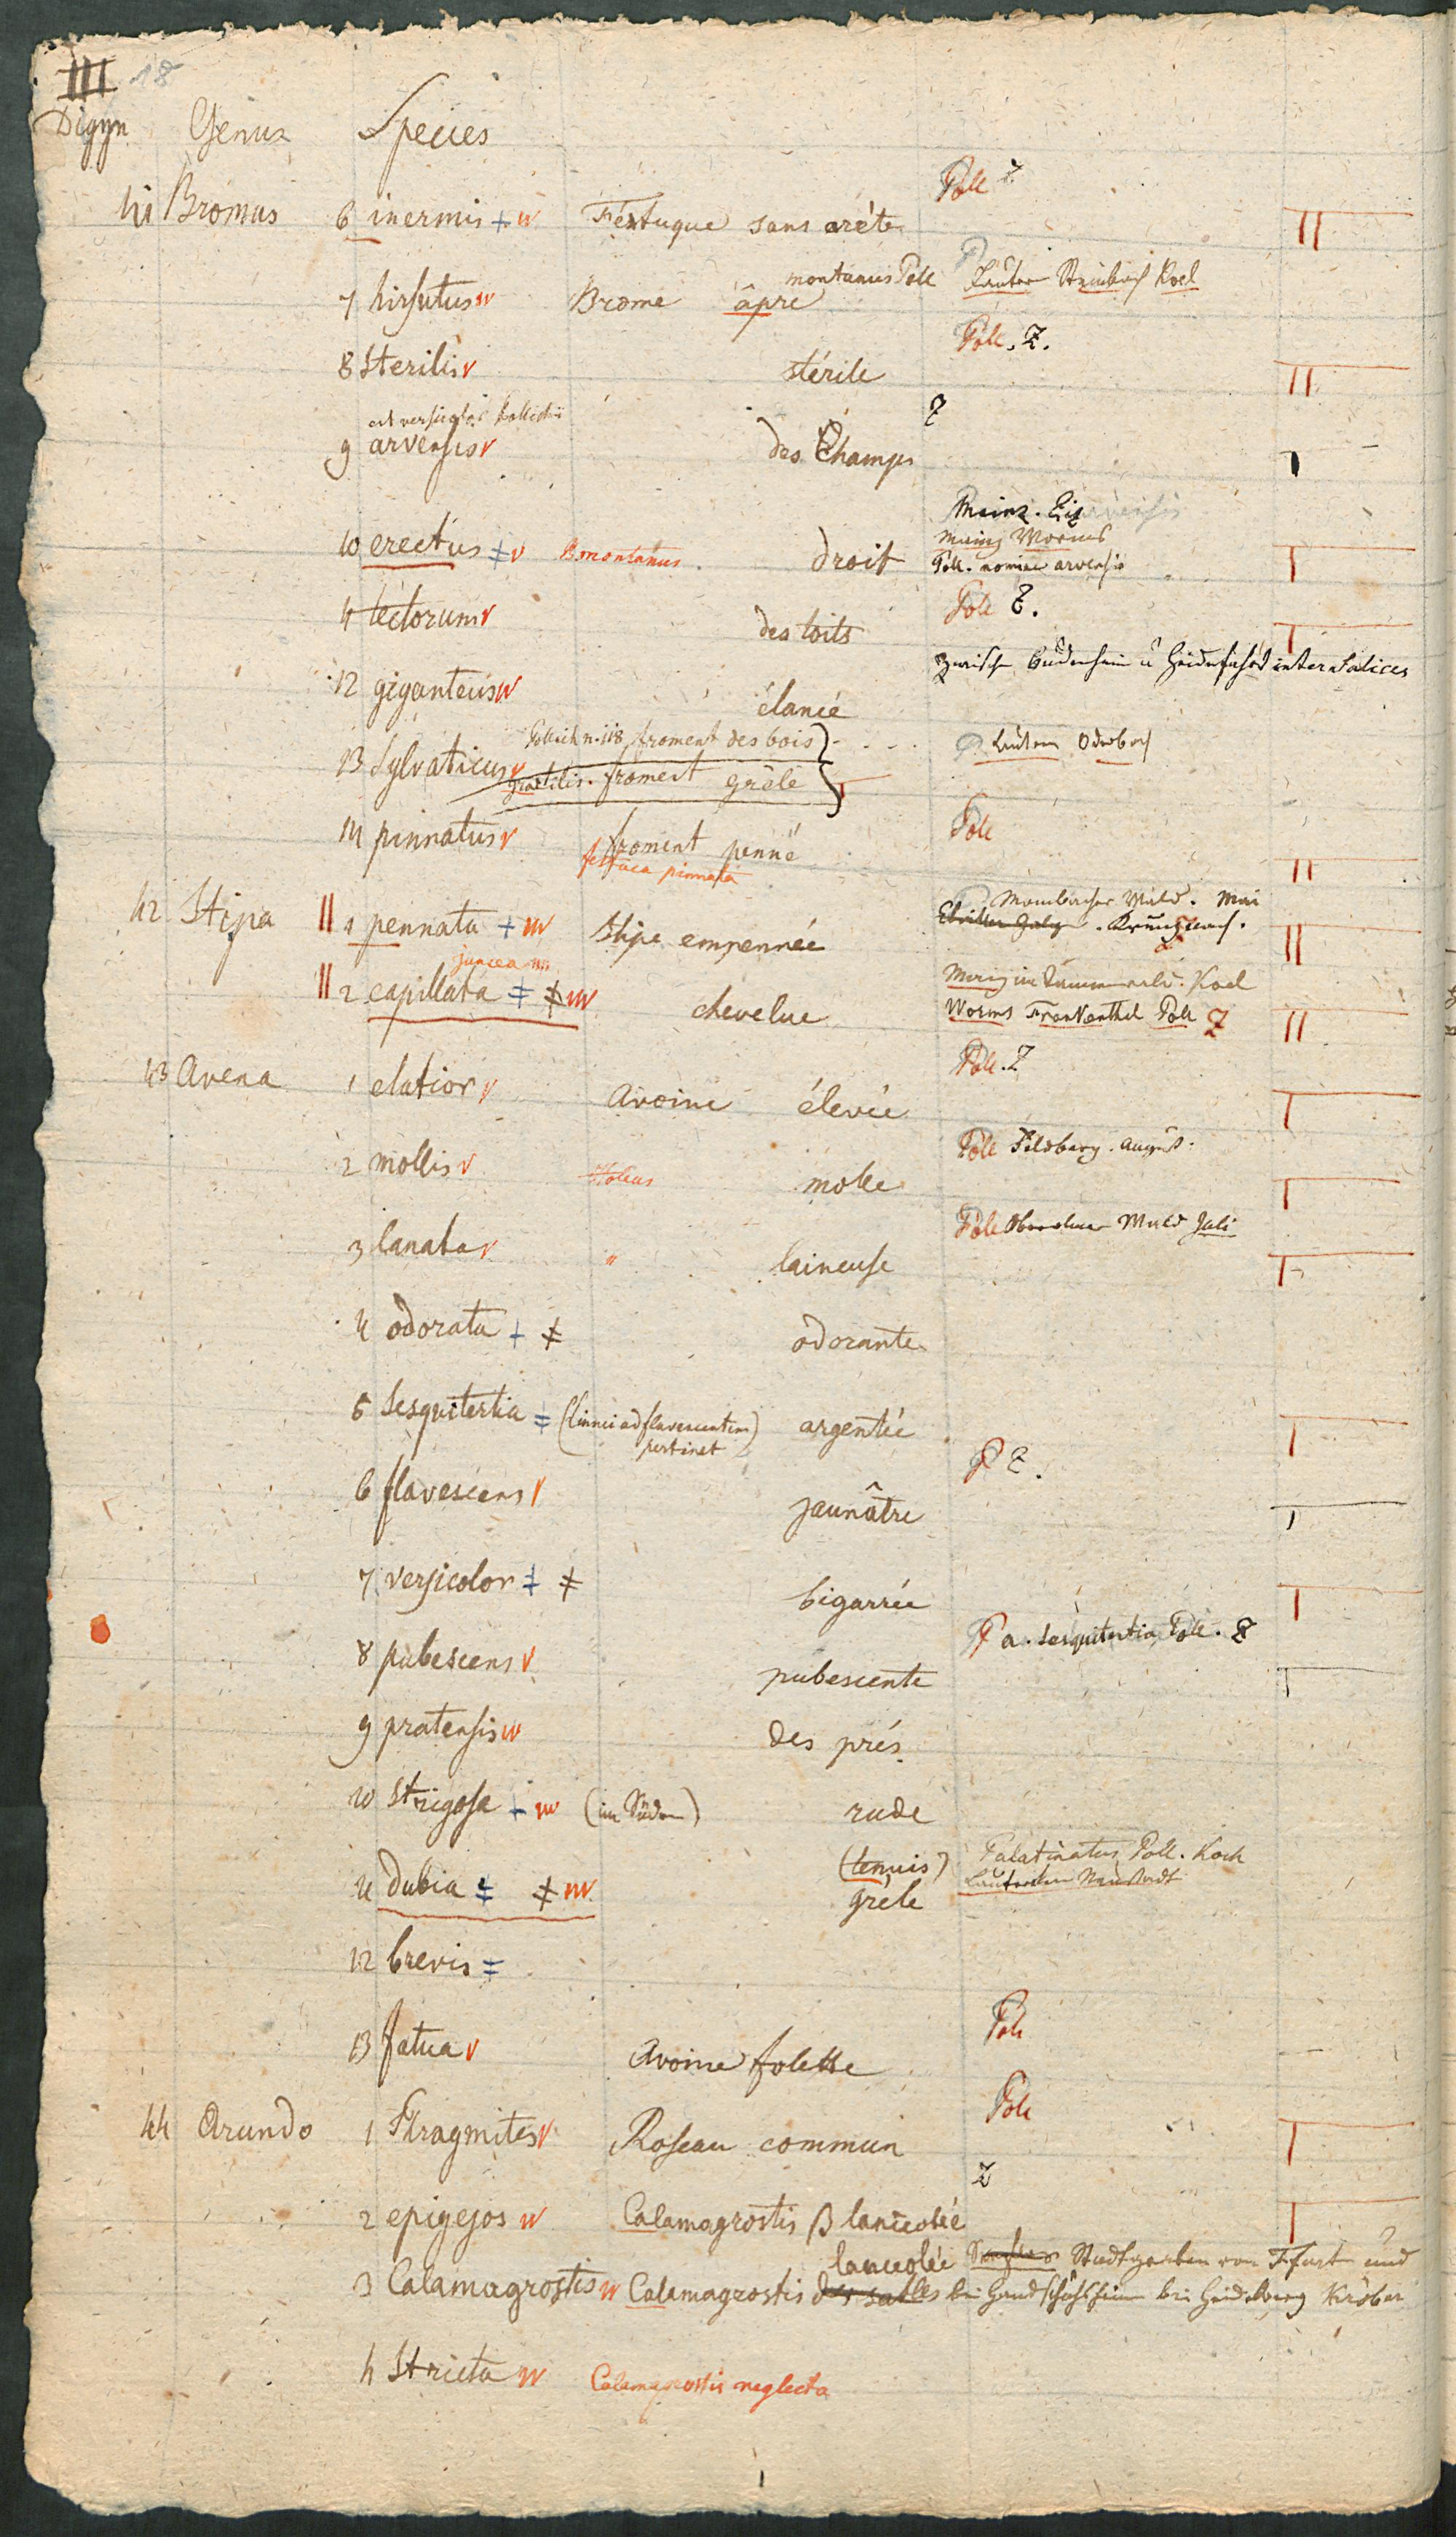 III 18
Digyn Genus Species
41 Bromus 6 inermis + w Féstuque sans arête Poll
7 hirsutus w Brome âpre montanus Poll Lautern Koel
8 Sterilis v stérile Poll. Z.
9 arvensis v des Champs Z
10 erectus ‡ v B montanus. droit Mainz Worms
Poll. nomine arvensis
11 tectorum v des toits Poll Z.
12 giganteus w élancé inter Salices
13 Sylvaticus v Pollich n. 118 froment des bois Lautern Oderbach
gracilis. froment grêle
14 pinnatus v froment penné Poll
festuca pinnata
42 Stipa 1 pennata + w Stipe empennée Mombacher Wald. Mai
Kreuznach.
juncea
2 capillata ‡ ‡ w chevelue Koel
Worms Frankenthal Poll Z
43 Avena 1 elatior v Avoine élevée Poll. Z
2 mollis v Holcus molle Poll Feldberg. August.
3 lanata v " laineuse Poll Wald Juli
4 odorata + ‡ odorante
5 Sesquitertia = (Linnei ad flavescentem pertinet) argentée
6 flavescens v jaunâtre P Z.
7 versicolor ‡ ‡ bigarrée
8 pubescens v pubescente P a. sesquitertia Poll. Z
9 pratensis w des prés
10 Strigosa + w (im Süden) rude
11 dubia ‡ ‡ w (tenuis) grêle Palatinatus Poll. Koch
Lautern Neustadt
12 brevis =
13 fatua v Avoine folette Poll
44 Arundo 1 Phragmites v Roseau commun Poll
2 epigejos w Calamagrostis β lanceolée Z
3 Calamagrostis w Calamagrostis des sables lanceolée
bei Handschuhsheim bei Heidelberg
4 Stricta w Calamagrostis neglecta